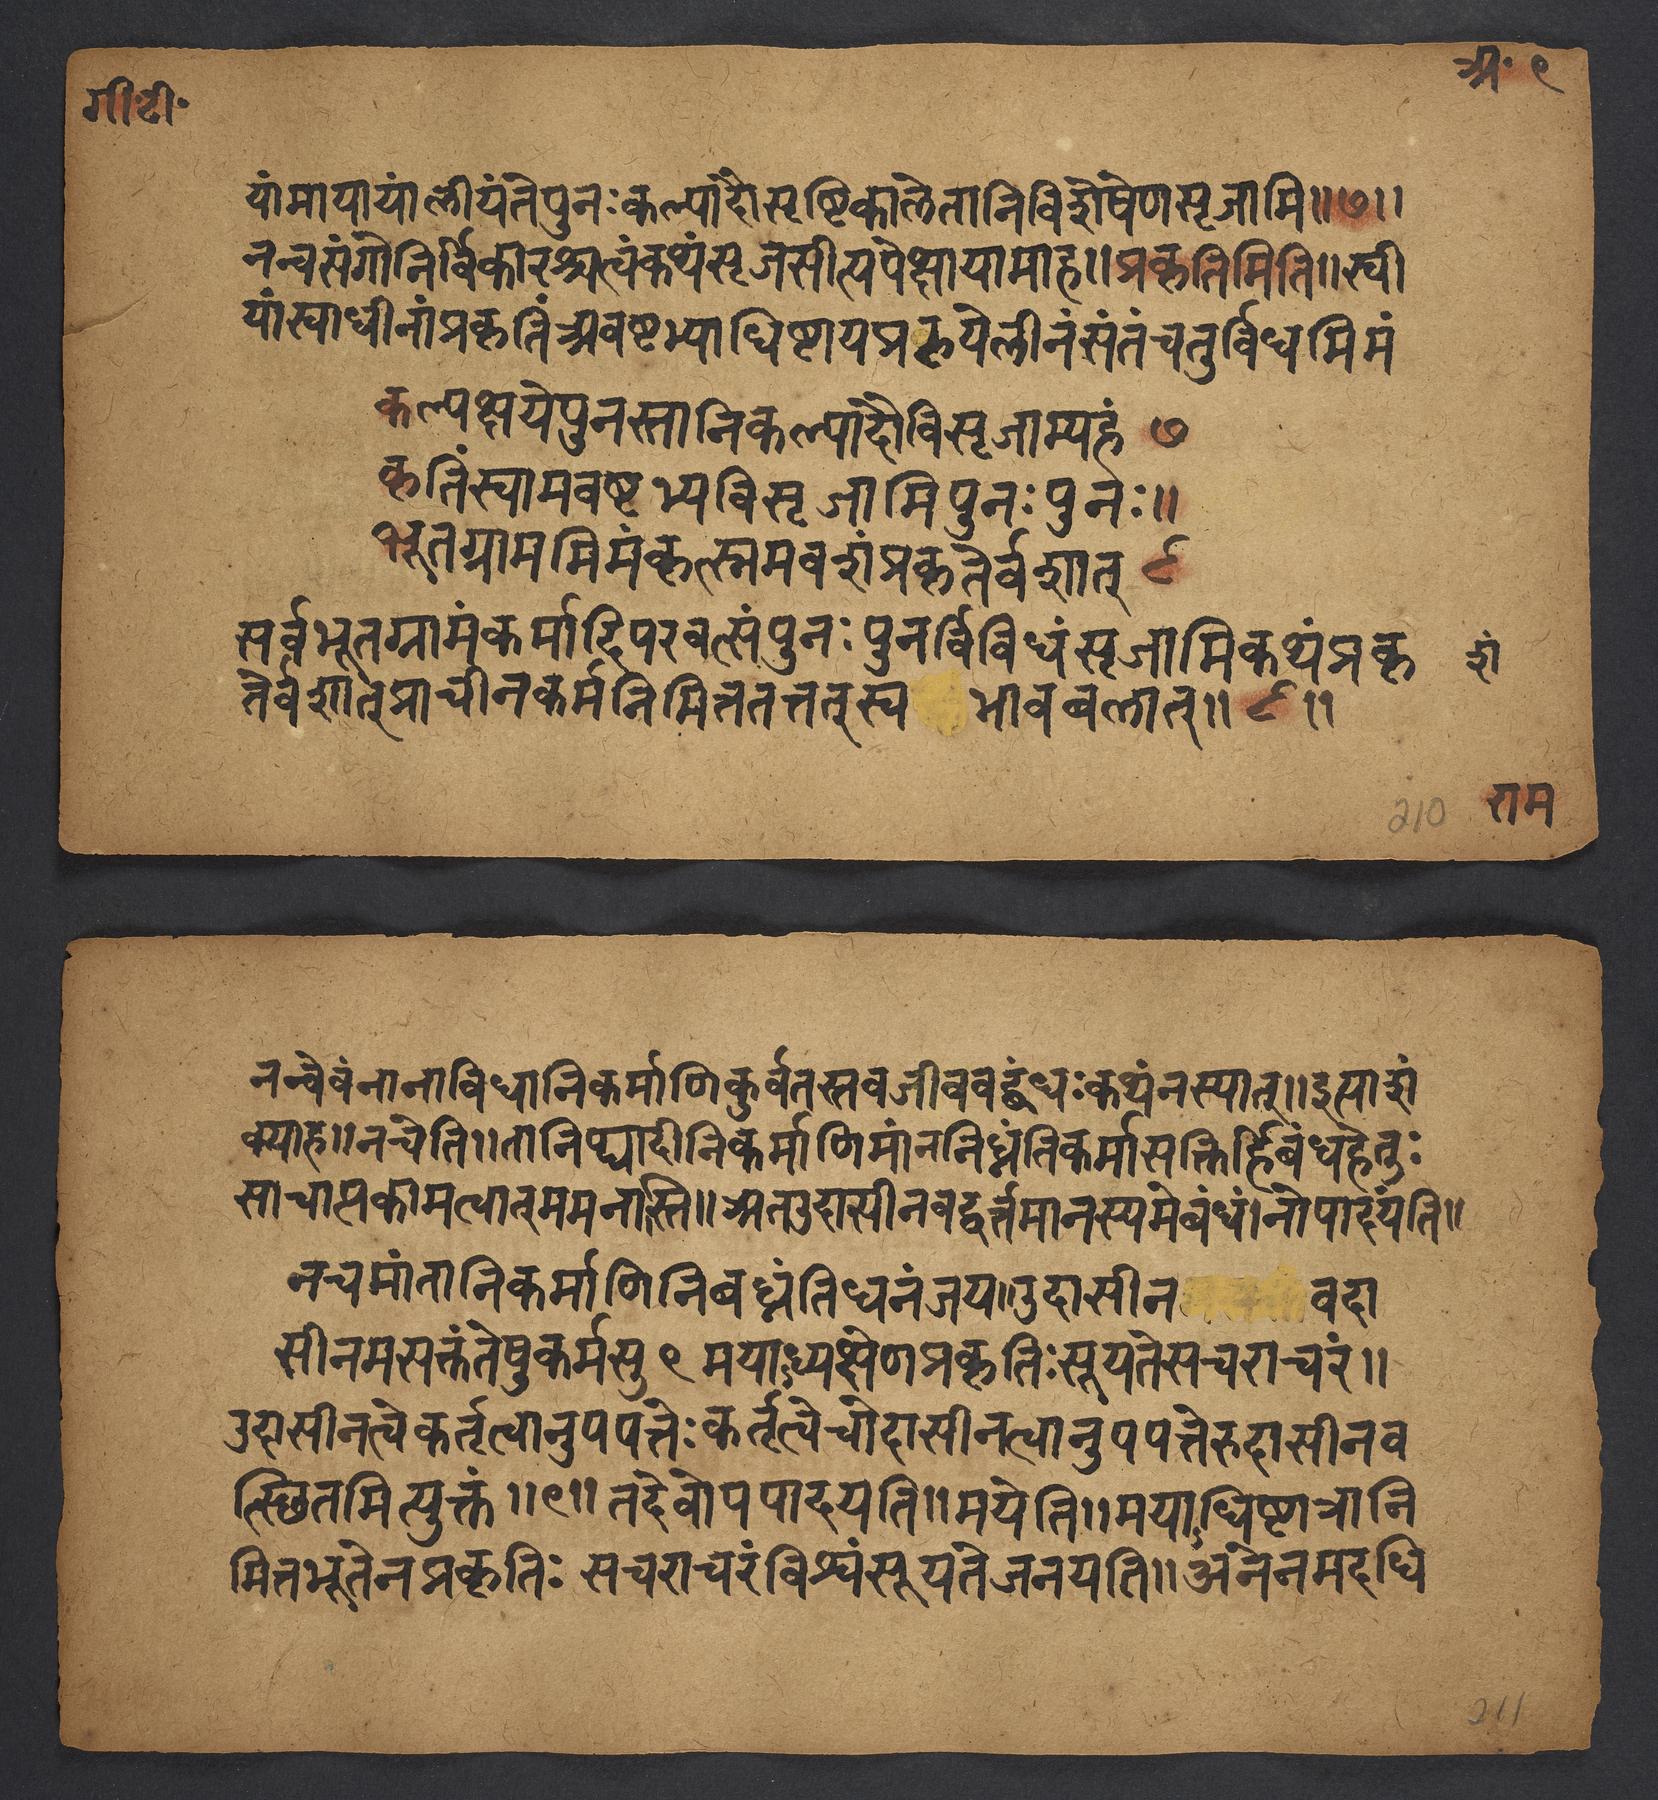 गी॰टी॰
अ॰ ९
यांमायायांलीयंतेपुनःकल्पांदौसृष्टिकालेतानिविशेषेणसृजामि॥७॥
नन्वसंगोनिर्विकारश्चत्वंकथंसृजसीत्यपेक्षायामाह॥प्रकृतिमिति॥स्वी
यांस्वाधीनांप्रकृतिंअवष्टभ्याधिष्टायप्रकृयेलीनंसंतंचतुर्विधमिमं
कल्पक्षयेपुनस्तानिकल्पादौविसृजाम्यहं ७
कृतिंस्वामवष्टभ्यविसृजामिपुनःपुनः॥
भूतग्राममिमंकृत्स्नमवशंप्रकृतेर्वशात् ८
सर्वभूतग्रामंकर्मादिपरवत्संपुनःपुनर्विविधंसृजामिकथंप्रकृ
शं
तेर्वशात्प्राचीनकर्मनिमित्ततत्तत्स्व भावबलात्॥८॥
210
राम
नन्वेवंनानाविधानिकर्माणिकुर्वतस्तवजीववद्बंधःकथंनस्यात्॥इत्याशं
क्याह॥नचेति॥तानिष्द्यादीनिकर्माणिमांननिध्नंतिकर्मासक्तिर्हिबंधहेतुः
साचाप्तकामत्वात्ममनास्ति॥अतउदासीनवद्वर्त्तमानस्यमेबंधं।नोपादयंति॥
नचमांतानिकर्माणिनिबध्नंतिधनंजय॥उदासीन वदा
सीनमसक्तंतेषुकर्मसु ९ मयाऽध्यक्षेणप्रकृतिःसूयतेसचराचरं॥
उदासीनत्वेकर्तृत्वानुपपत्तेःकर्तृत्वेचोदासीनत्वानुपपत्तेरुदासीनव
त्स्छितमित्युक्तं॥९॥तदेवोपपादयति॥मयेति॥मयाऽधिष्टात्रानि
मित्तभूतेनप्रकृतिः सचराचरंविश्वंसूयतेजनयति॥अनेनमदधि
211